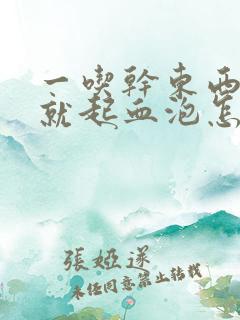 一喫幹東西
就起血泡怎
張婭遂
未经同意禁止转载